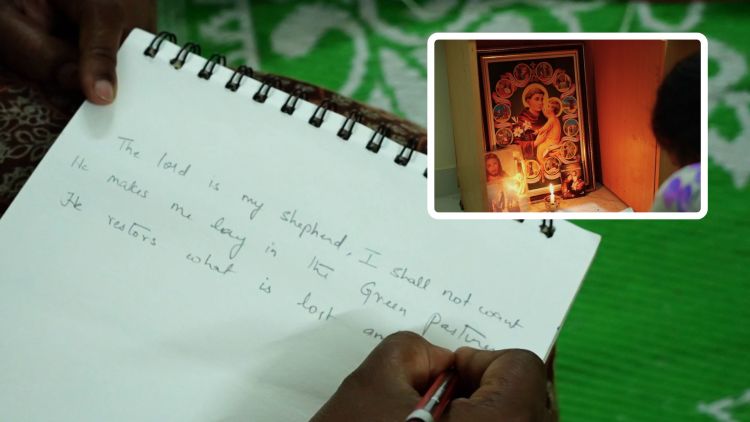 The lord is my shepherd, I shall not want
He makes me lay in the Green pastures
He restors what is lost an